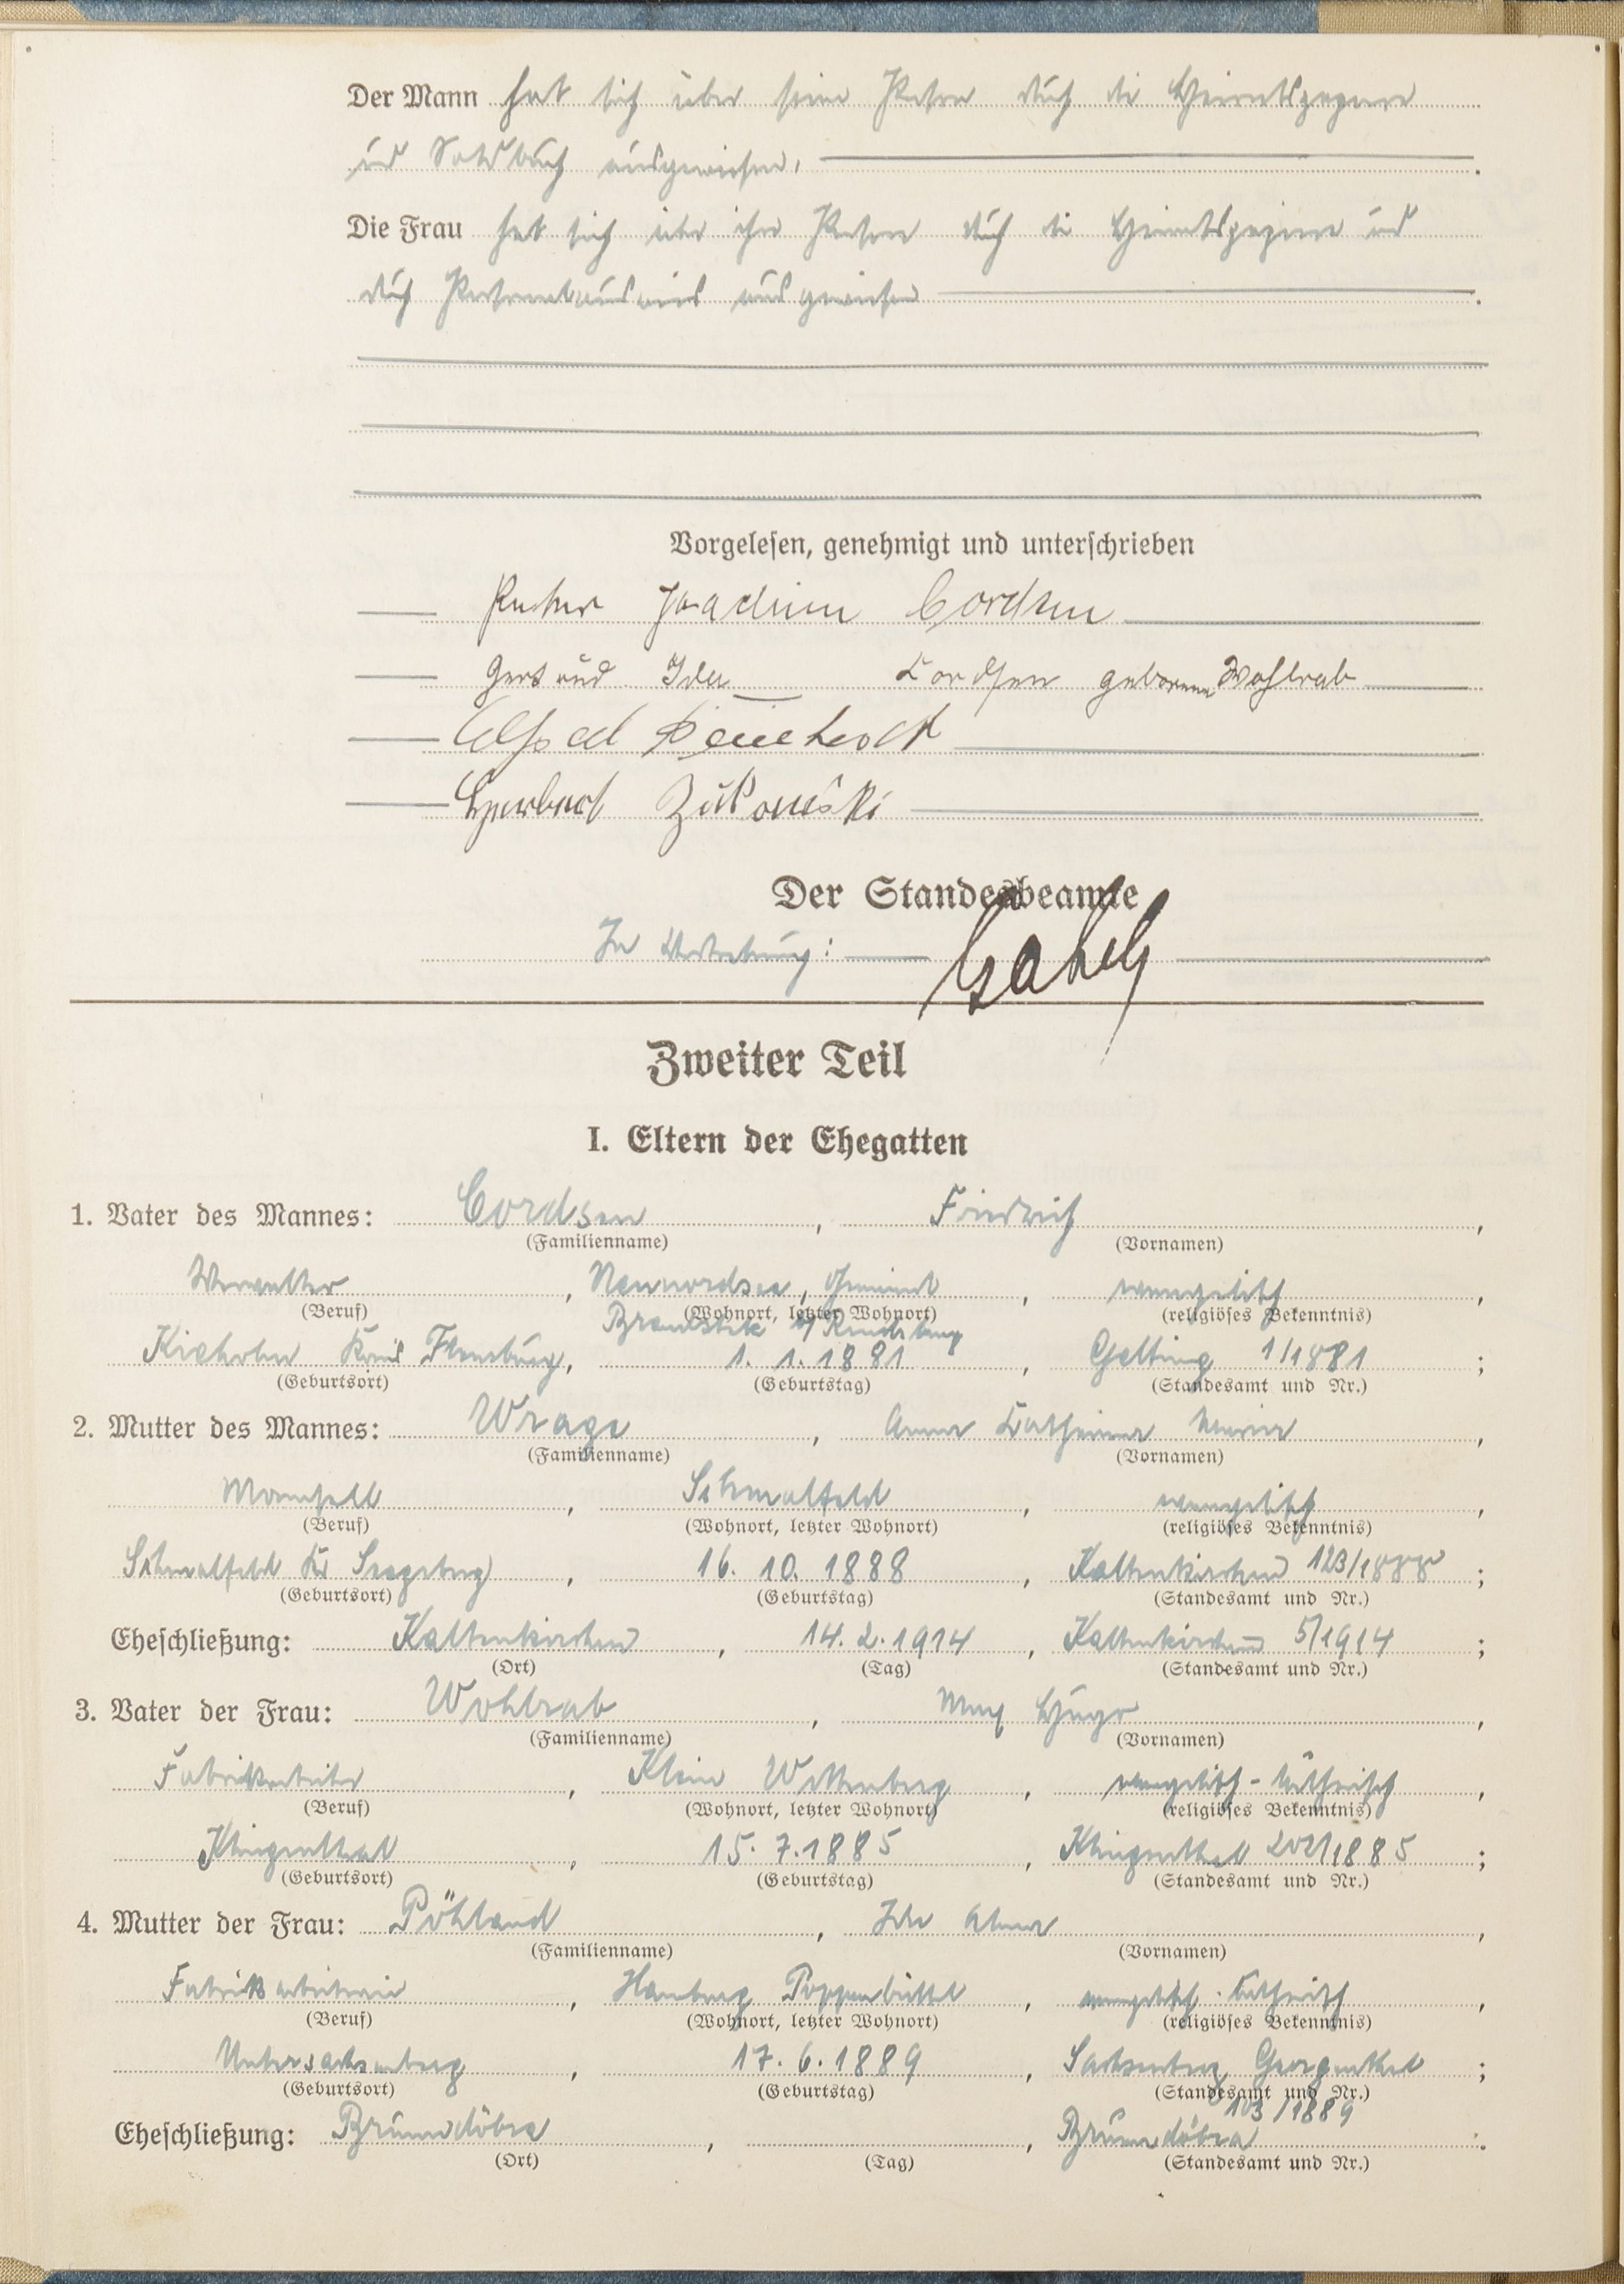 Der Mann hat sich über seine Person durch die Heiratspapiere
und Soldbuch ausgewiesen.
Die Frau hat sich über ihre Person durch die Heiratspapiere und
durch Personalausweis ausgewiesen.
Vorgelesen, genehmigt und unterschrieben
Joachim Cordsen
Gertrud Ida Cordsen geborene Wohlrab
Alfred
Herbert Zukowski
Der Standesbeamte
In Vertretung:
Zweiter Teil
I. Eltern der Ehegatten
1. Vater des Mannes: Cordsen, Friedrich,
(Familienname) (Vornamen)
Verwalter, Nennordsee, Gemeinde, evangelisch,
(Beruf) (Wohnort, letzter Wohnort) (religiöses Bekenntnis)
Rendsburg
Kieholm Kreis Flensburg, 1. 1. 1881, Gelting 1/1881;
(Geburtsort) (Geburtstag) (Standesamt und Nr.)
2. Mutter des Mannes: Wrage, Anna Katharina Maria,
(Familienname) (Vornamen)
Mamsell, Schmalfeld, evangelisch,
(Beruf) (Wohnort, letzter Wohnort) (religiöses Bekenntnis)
Schmalfeld Kr Segeberg, 16. 10. 1888, Kaltenkirchen 123/1888;
(Geburtsort) (Geburtstag) (Standesamt und Nr.)
Eheschließung: Kaltenkirchen, 14. 2. 1914, Kaltenkirchen 5/1914;
(Ort) (Tag) (Standesamt und Nr.)
3. Vater der Frau: Wohlrab, Max Hugo,
(Familienname) (Vornamen)
Fabrikarbeiter, Klein Wittenberg, evangelisch-lutherisch,
(Beruf) (Wohnort, letzter Wohnort) (religiöses Bekenntnis)
Klingenthal, 15. 7. 1885, Klingenthal 202/1885;
(Geburtsort) (Geburtstag) (Standesamt und Nr.)
4. Mutter der Frau: Pöhland, Ida Alma,
(Familienname) (Vornamen)
Fabrikarbeiterin, Hamburg Poppenbüttel, evangelisch-lutherisch,
(Beruf) (Wohnort, letzter Wohnort) (religiöses Bekenntnis)
Untersachsenberg, 17. 6. 1889, Sachsenberg Georgenthal;
(Geburtsort) (Geburtstag) (Standesamt und Nr.)
103/1889
Eheschließung: Brunndöbra, , Brunndöbra.
(Ort) (Tag) (Standesamt und Nr.)